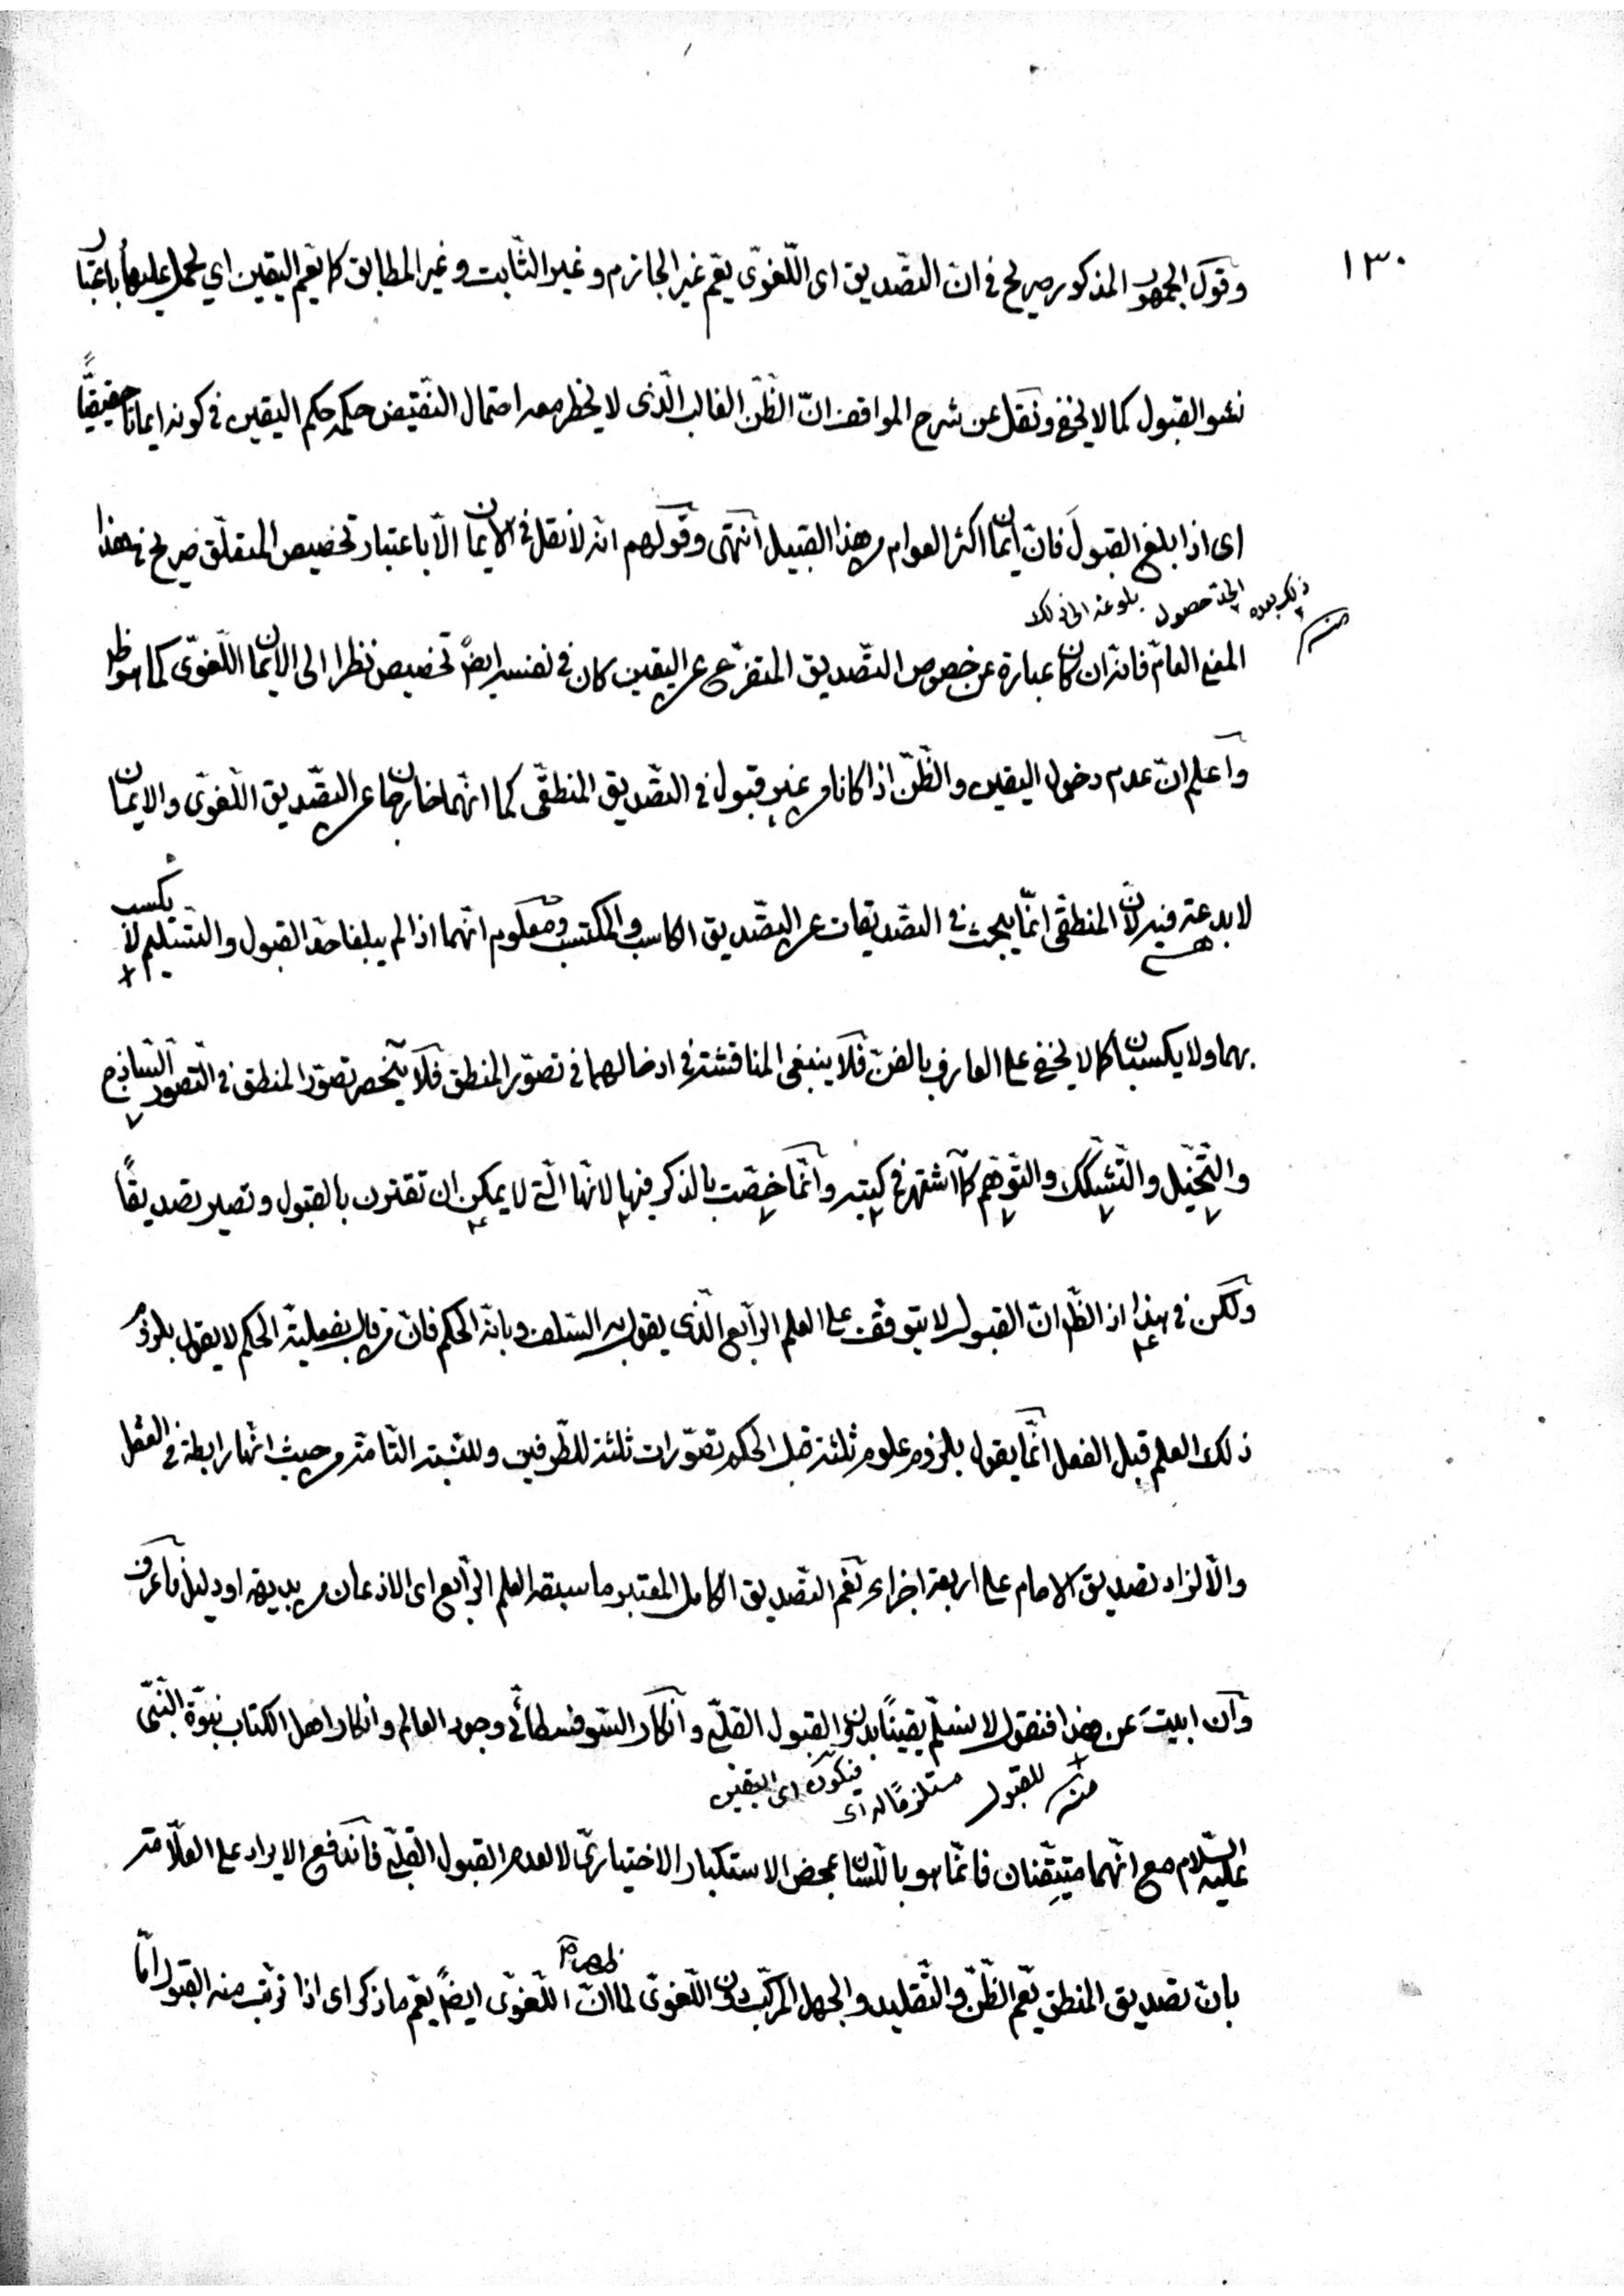 ١٣٠
وقول الجمهور المذكور صريح في انّ التصديق اى اللّغوىّ يعمّ غير الجازم وغير الثّابت وغير المطابق كما يعمّ اليقين اي يحمل عليها باعتبار
نشو القبول كما لا يخفى ونقل عن شرح المواقف انّ الظّنّ الغالب الّذى لا يخطر معه احتمال النّقيض حكمه حكم اليقين في كونه ايمانا حقيقيًّا
اى اذا بلغ القبولَ فانّ ايمان اكثر العوام من هذا القبيل انتهى وقولهم انّه لا نقل في الايمان الّا باعتبار تخصيص المتعلّق صريح في هذا
المعنى العامّ فانّه ان كان عبارة عن خصوص التّصديق المتفرّع على اليقين كان في نفسه ايضً تخصيص نظرا الى الايمان اللّغوىّ كما هو ظ
ذلك بعده الجد حصول بلوغه الى ذلك
منه
واعلم انّ عدم دخول اليقين والظّنّ اذا كانا من غير قبول في التّصديق المنطقّى كما انّهما خارجان عن التّصديق اللّغوىّ والايمان
لا بدعة فيه لانّ المنطقّى انّما يبحث في التصديقات عن التّصديق الكاسب والمكتسب ومعلوم انّهما اذا لم يبلغا حدّ القبول والتّسليم لا يكسب
بهما ولا يكسبان كما لا يخفى على العارف بالفنّ فلا ينبغى المناقشة في ادخالهما في تصوّر المنطق فلا ينحصر تصوّر المنطق في التّصور السّاذج
والتّخيّل والتّشكّك والتّوهّم كما اشتهر في كتبه وانّما خصّت بالذكر فيها لانّها الّتى لا يمكن ان تقترن بالقبول وتصير تصديقًا
ولكن في هذا اذ الظّ انّ القبول لا يتوقّف على العلم الرّابع الّذى يقول به السّلف وبانّه الحكم فانّ من قال بفعليّة الحكم لا يقول بلزوم
ذلك العلم قبل الفعل انّما يقول بلزوم علوم ثلثة قبل الحكم تصوّرات ثلثة للطّرفين وللنّسبة التّامّة من حيث انّها رابطة في العقل
والّا لزاد تصديق الامام على اربعة اجزاء نعم التّصديق الكامل المعتبر ما سبقه العلم الرّابع اى الاذعان من بديهة او دليل فاعرف
وان ابيتَ عن هذا فنقول لا نسلّم يقينًا بدون القبول القلبّى وانكار السّوفسطائّى وجود العالم وانكار اهل الكتاب نبوّة النّبىّ
فيكون اى اليقين مستلزمًا له اى للقبول منه
عليه السّلام مع انّهما متيقّنان فانّما هو باللّسان بمحض الاستكبار الاختيارىّ لا لعدم القبول القلبّى فاندفع الايراد على العلّامة
بانّ تصديق المنطق يعمّ الظّنّ والتّقليد والجهل المركّب دون اللّغوىّ لما انّ اللّغوىّ ايضً يعمّ ما ذكر اى اذا ترتّب منه القبول امّا